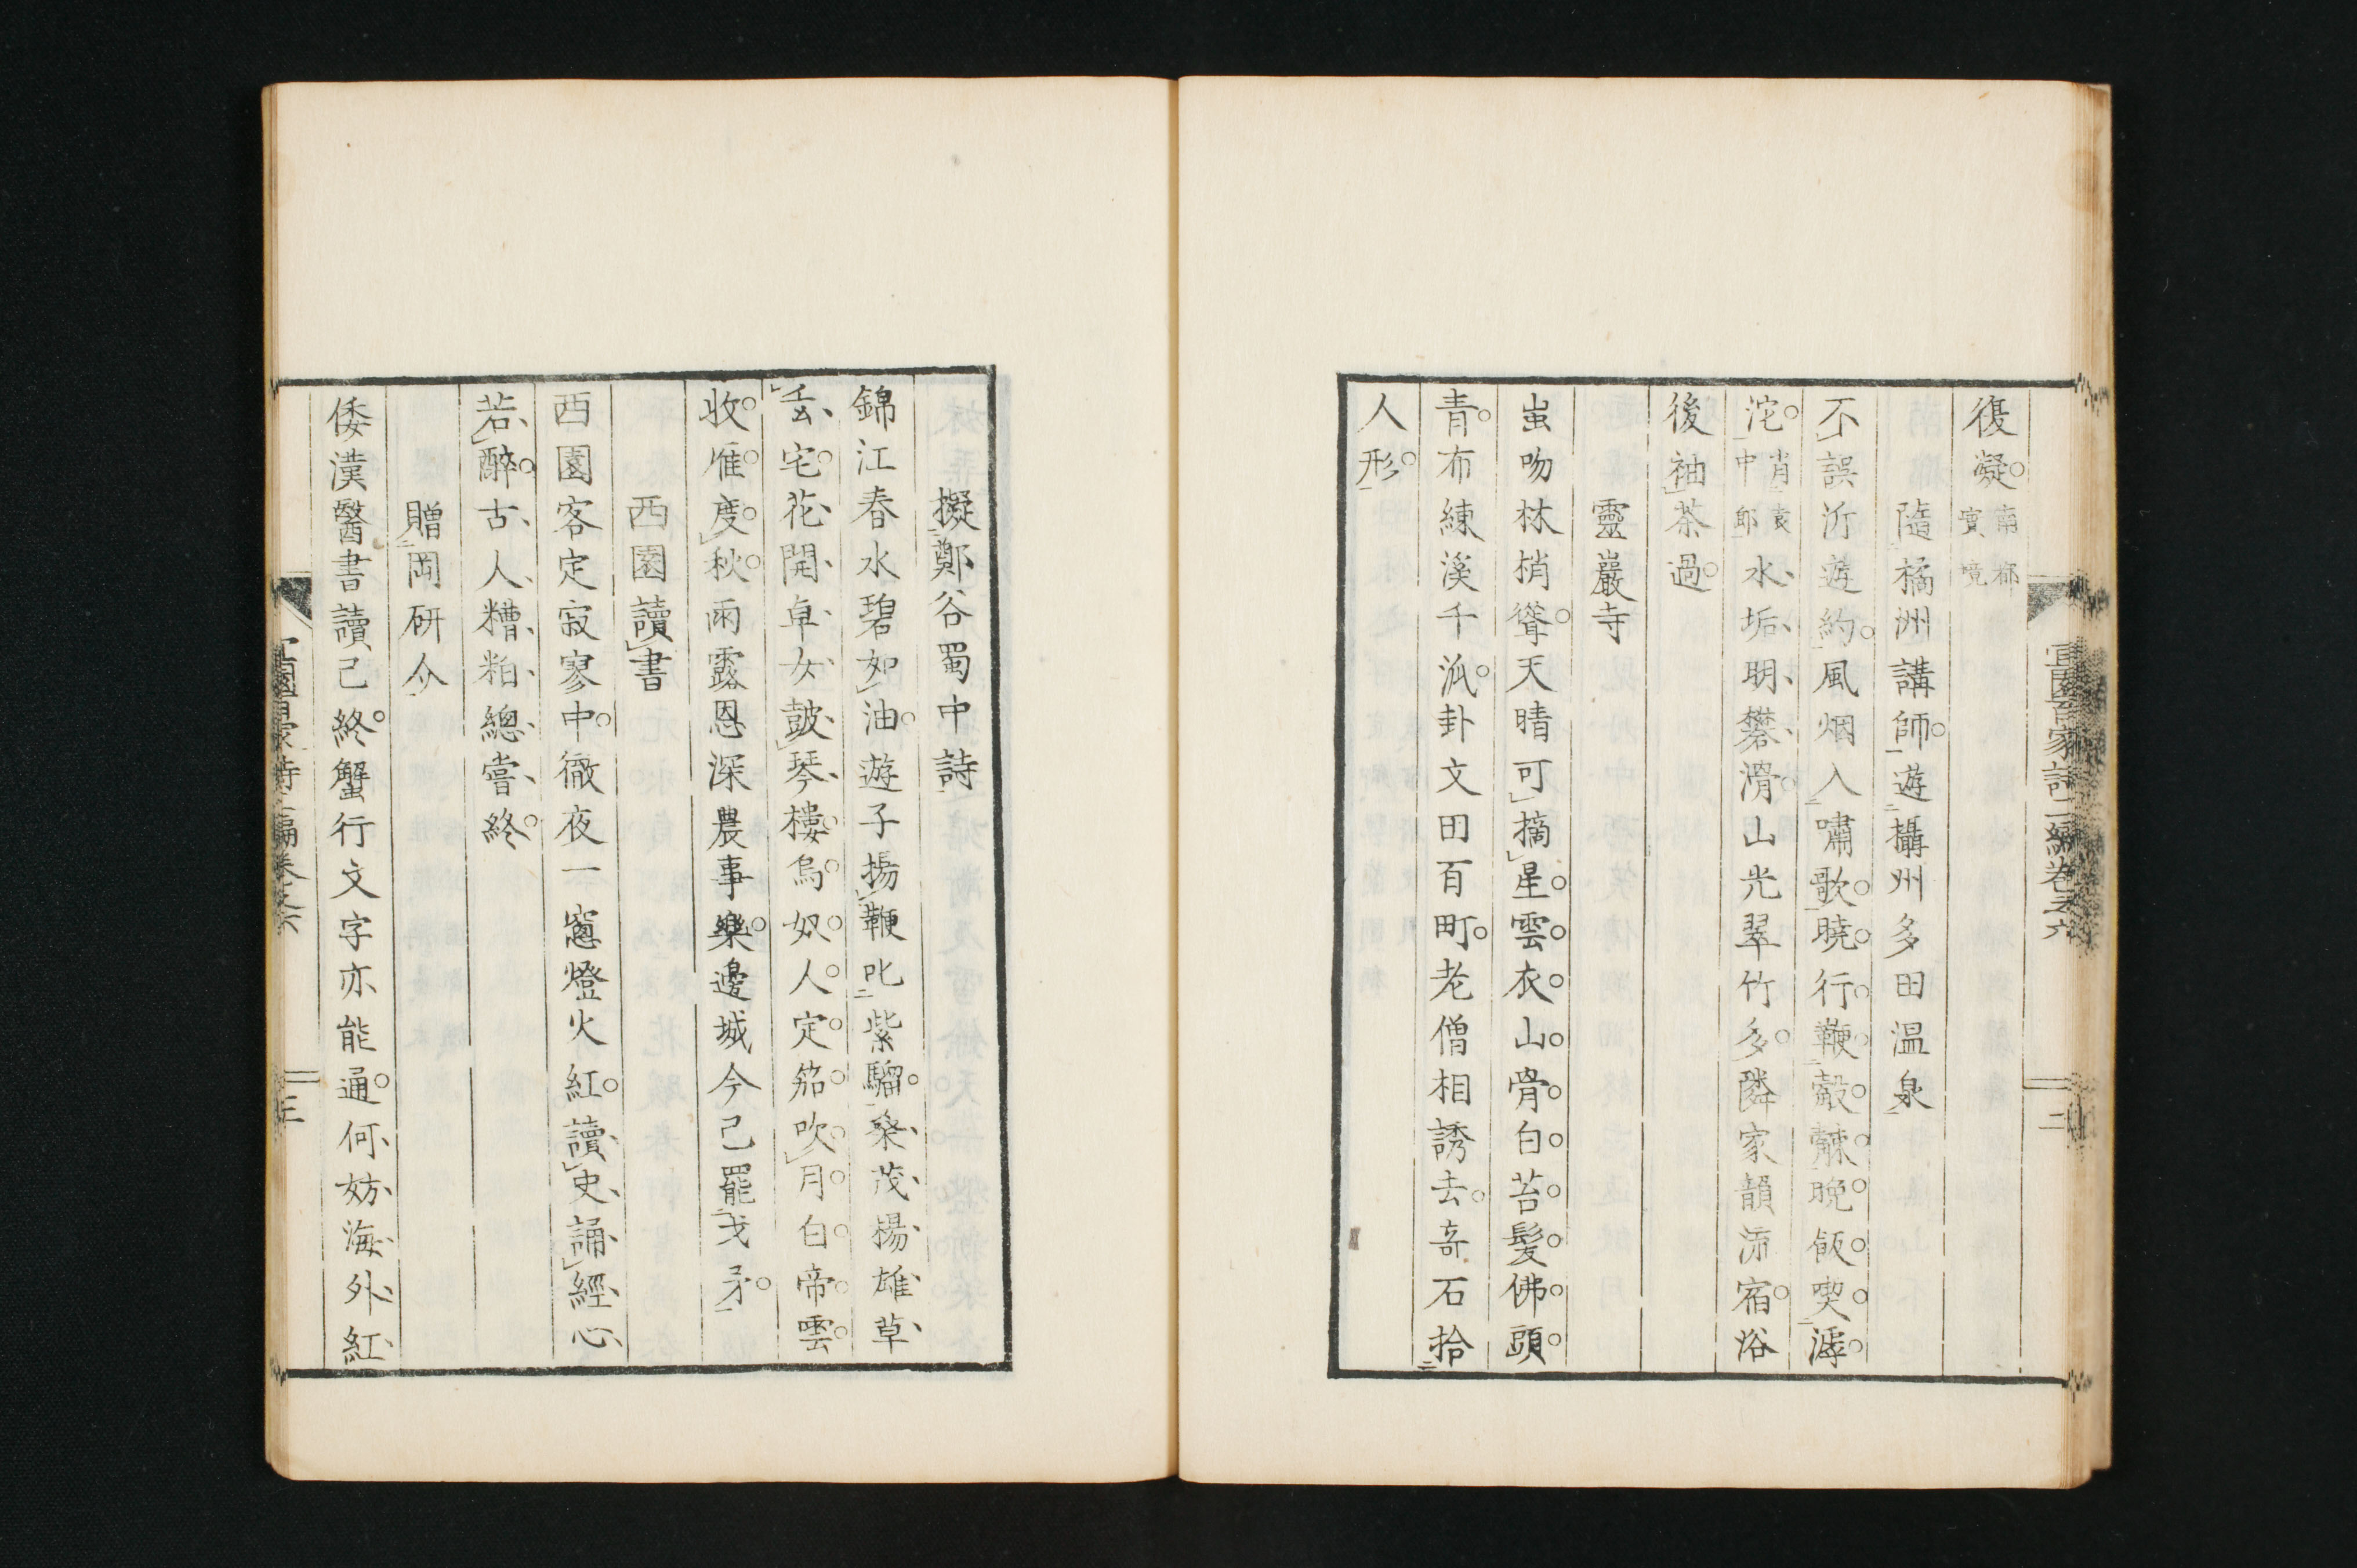 復凝。南都
實境
隨橘洲講師。遊攝州多田温泉
不誤沂遊約。風烟入嘯歌。曉行鞭觳觫。晩飯喫滹
沱。肖袁
中郎水垢明礬滑。山光翠竹多。隣家韻流宿。浴
後袖茶過。
靈巖寺
蚩吻林梢聳。天晴可摘星。雲衣山骨白。苔髪佛頭
青。布練溪千派。卦文田百町。老僧相誘去。奇石拾
人形。
宜園百家詩二編卷之六
二
擬鄭谷蜀中詩
錦江春水碧如油。遊子揚鞭叱紫騮。桑茂楊雄草
玄宅。花開卓女鼓琴樓。烏奴人定笳吹月。白帝雲
收雁度秋。雨露恩深農事樂。邊城今已罷戈矛。
西園讀書
西園客定寂寥中。徹夜一窻燈火紅。讀史誦經心
若醉。古人糟粕總嘗終。
贈岡研介
倭漢醫書讀已終。蟹行文字亦能通。何妨海外紅
宜園百家詩二編卷之六
三